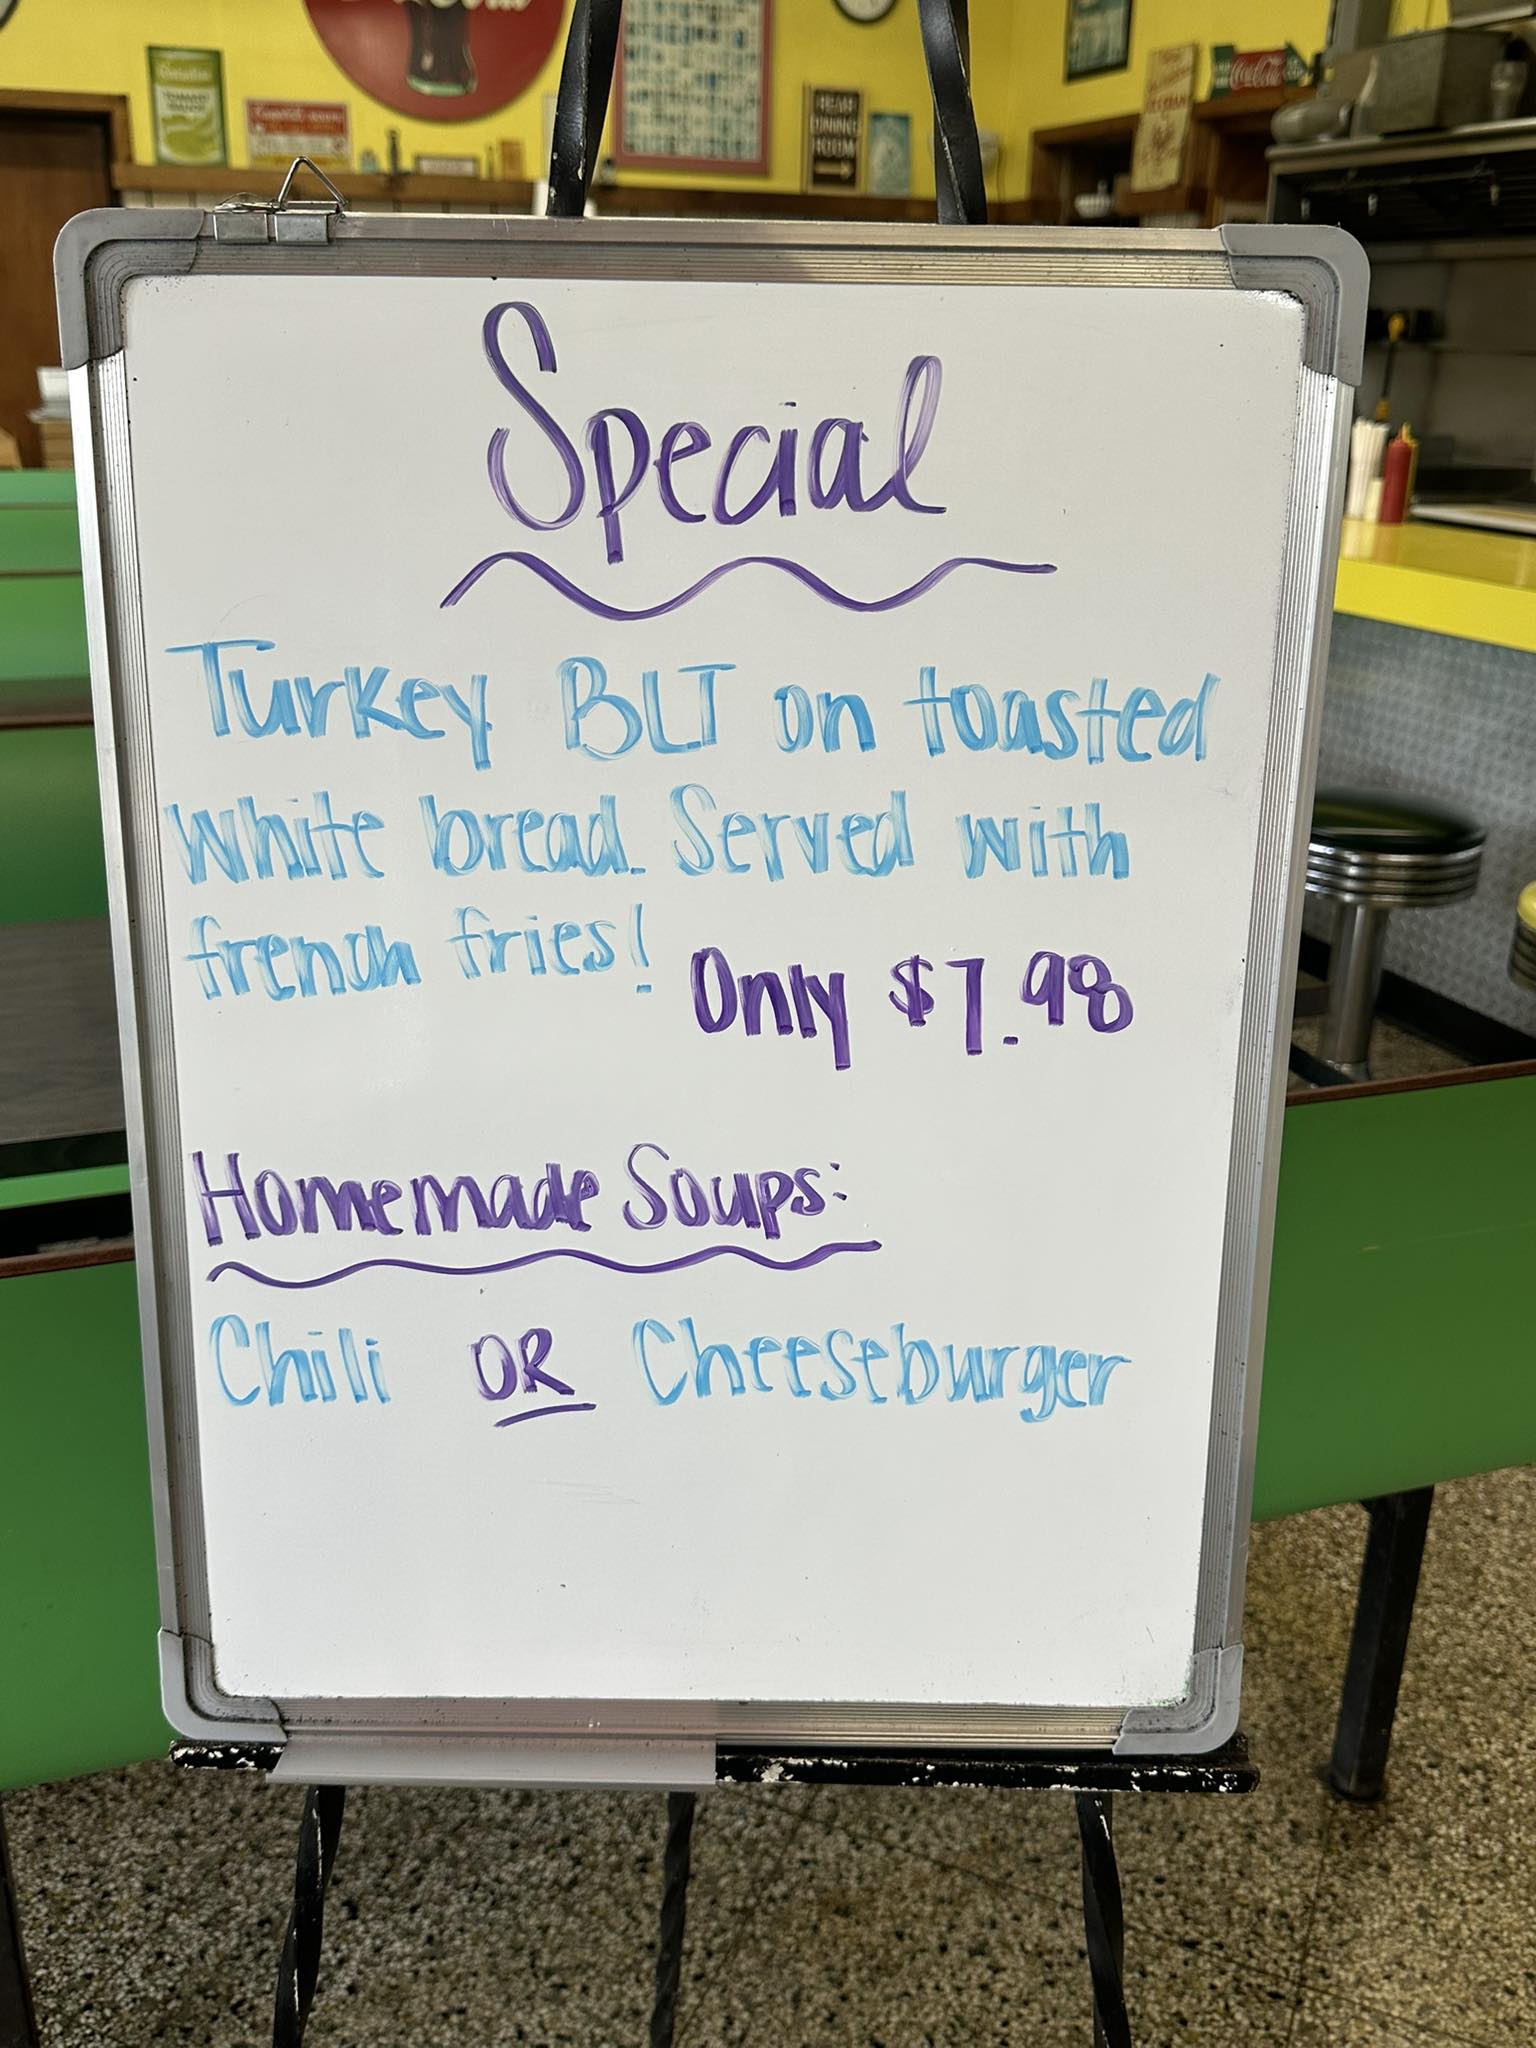 REAR
DINING
ROOM
Coca-Cola
Special
Turkey BLT on toasted
white bread. Served with
french fries!
Only $7.98
Homemade Soups:
Chili OR Cheeseburger